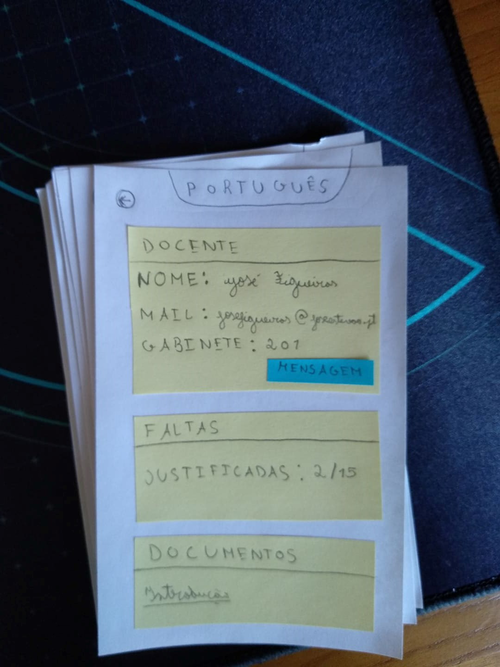 PORTUGUÊS
DOCENTE
NOME: José Figueiros
MAIL: josefigueiros@
GABINETE: 201
MENSAGEM
FALTAS
JUSTIFICADAS: 2/15
DOCUMENTOS
Introdução